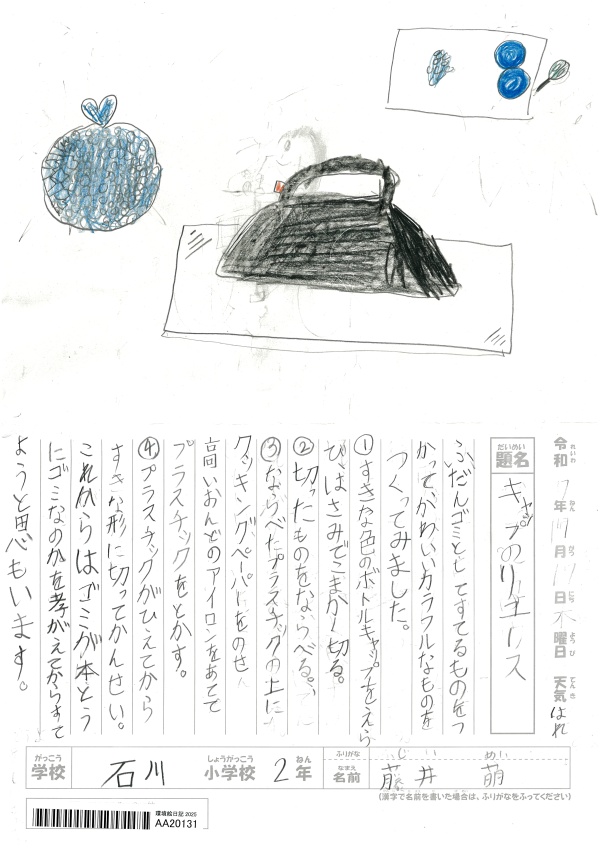 令和 7年 7月 17日 木曜日 天気 はれ
れいわ ねん がつ にち よう び てん き
だいめい
題名 キャップのリユース
ふだんゴミとしてすてるものをつ
かって、かわいいカラフルなものを
つくってみました。
①すきな色のボトルキャップをえら
び、はさみでこまかく切る。
②切ったものをならべる。
③ならべたプラスチックの上に
クッキングペーパーをのせ、
高いおんどのアイロンをあてて
プラスチックをとかす。
④プラスチックがひえてから
すきな形に切ってかんせい。
これからはゴミが本とう
にゴミなのかを考がえてからすて
ようと思もいます。
がっこう しょうがっこう ねん ふりがな ふじ い めい
学校 石川 小学校 2年 なまえ 名前 藤井 萌
(漢字で名前を書いた場合は、ふりがなをふってください)
環境絵日記2025
AA20131